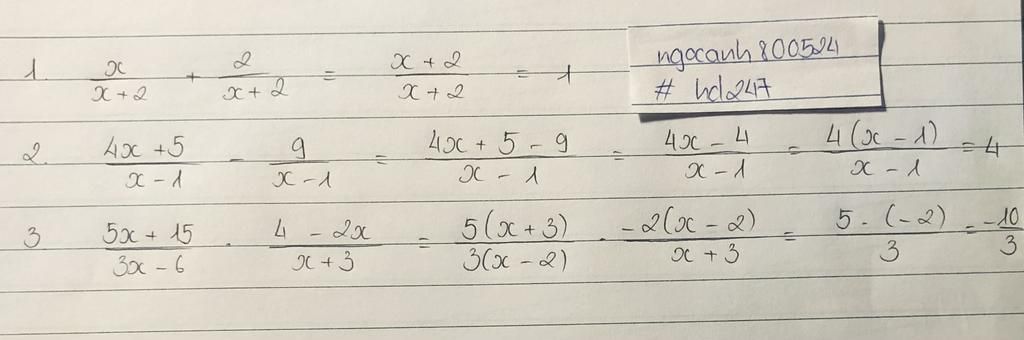 1. x/(x+2) + 2/(x+2) = (x+2)/(x+2) = 1
ngocanh800524
# hd247
2. (4x+5)/(x-1) - 9/(x-1) = (4x+5-9)/(x-1) = (4x-4)/(x-1) = 4(x-1)/(x-1) = 4
3 (5x+15)/(3x-6) . (4-2x)/(x+3) = 5(x+3)/3(x-2) . -2(x-2)/(x+3) = 5.(-2)/3 = -10/3